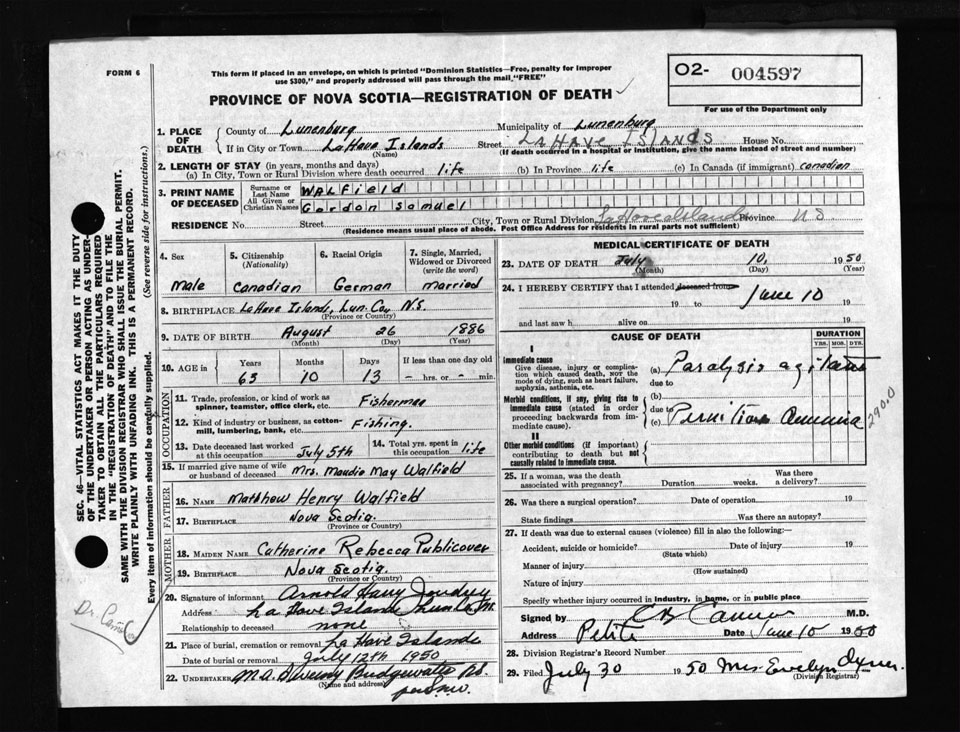 FORM 6
This form if placed in an envelope, on which is printed "Dominion Statistics—Free, penalty for improper
use $300," and properly addressed will pass through the mail, "FREE"
O2- 004597
For use of the Department only
PROVINCE OF NOVA SCOTIA—REGISTRATION OF DEATH
1. PLACE OF DEATH
County of Lunenburg Municipality of Lunenburg
If in City or Town LaHave Islands Street LAHAVE ISLANDS House No.
(Name) (If death occurred in a hospital or institution, give the name instead of street and number)
2. LENGTH OF STAY (in years, months and days)
(a) In City, Town or Rural Division where death occurred life (b) In Province life (c) In Canada (if immigrant) canadian
3. PRINT NAME OF DECEASED
Surname or Last Name WALfield
All Given or Christian Names Gordon samuel
RESIDENCE No. Street City, Town or Rural Division LaHave Island Province N S
(Residence means usual place of abode. Post Office Address for residents in rural parts not sufficient)
4. Sex
male
5. Citizenship (Nationality)
Canadian
6. Racial Origin
German
7. Single, Married, Widowed or Divorced (write the word)
married
8. BIRTHPLACE LaHave Islands, Lun. Coy N.S.
(Province or Country)
9. DATE OF BIRTH August 26 1886
(Month) (Day) (Year)
10. AGE in Years Months Days If less than one day old
63 10 13 - hrs. or - min.
OCCUPATION
11. Trade, profession, or kind of work as spinner, teamster, office clerk, etc. Fisherman
12. Kind of industry or business, as cotton-mill, lumbering, bank, etc. Fishing.
13. Date deceased last worked at this occupation July 5th
14. Total yrs. spent in this occupation life
15. If married give name of wife or husband of deceased Mrs. Maudie May Walfield
FATHER
16. NAME Matthew Henry Walfield
17. BIRTHPLACE Nova Scotia.
(Province or Country)
MOTHER
18. MAIDEN NAME Catherine Rebecca Publicover
19. BIRTHPLACE Nova Scotia
(Province or Country)
20. Signature of informant Arnold Harry Joudrey
Address La Have Islands Lun. Co.
Relationship to deceased none
21. Place of burial, cremation or removal La Have Islands
Date of burial or removal July 12th 1950
22. UNDERTAKER M.A. Sweeny Bridgewater N.S.
(Name and address)
MEDICAL CERTIFICATE OF DEATH
23. DATE OF DEATH July 10, 1950
(Month) (Day) (Year)
24. I HEREBY CERTIFY that I attended deceased from June 10 19
19 to 19
and last saw h alive on 19
CAUSE OF DEATH
DURATION
YRS. MOS. DYS.
I
Immediate cause
Give disease, injury or complication which caused death, NOT the mode of dying, such as heart failure, asphyxia, asthenia, etc.
(a) Paralysis agitans
due to
Morbid conditions, if any, giving rise to immediate cause (stated in order proceeding backwards from immediate).
(b)
due to
(c) Pernitious Anemia
290.0
II
Other morbid conditions (if important) contributing to death but not causally related to immediate cause.
25. If a woman, was the death associated with pregnancy? Duration weeks. Was there a delivery?
26. Was there a surgical operation? Date of operation 19
State findings Was there an autopsy?
27. If death was due to external causes (violence) fill in also the following:
Accident, suicide or homicide? Date of injury 19
(State which)
Manner of injury
(How sustained)
Nature of injury
Specify whether injury occurred in industry, in home, or in public place
Signed by M.D.
Address Petite Date June 10 1950
28. Division Registrar's Record Number
29. Filed July 30 1950 Mrs Evelyn
(Division Registrar)
SEC. 46—VITAL STATISTICS ACT MAKES IT THE DUTY
OF THE UNDERTAKER OR PERSON ACTING AS UNDER-
TAKER TO OBTAIN ALL THE PARTICULARS REQUIRED
IN THE "REGISTRATION OF DEATH" AND TO FILE THE
SAME WITH THE DIVISION REGISTRAR WHO SHALL ISSUE THE BURIAL PERMIT.
WRITE PLAINLY WITH UNFADING INK. THIS IS A PERMANENT RECORD.
Every item of information should be carefully supplied. (See reverse side for instructions.)
Dr.